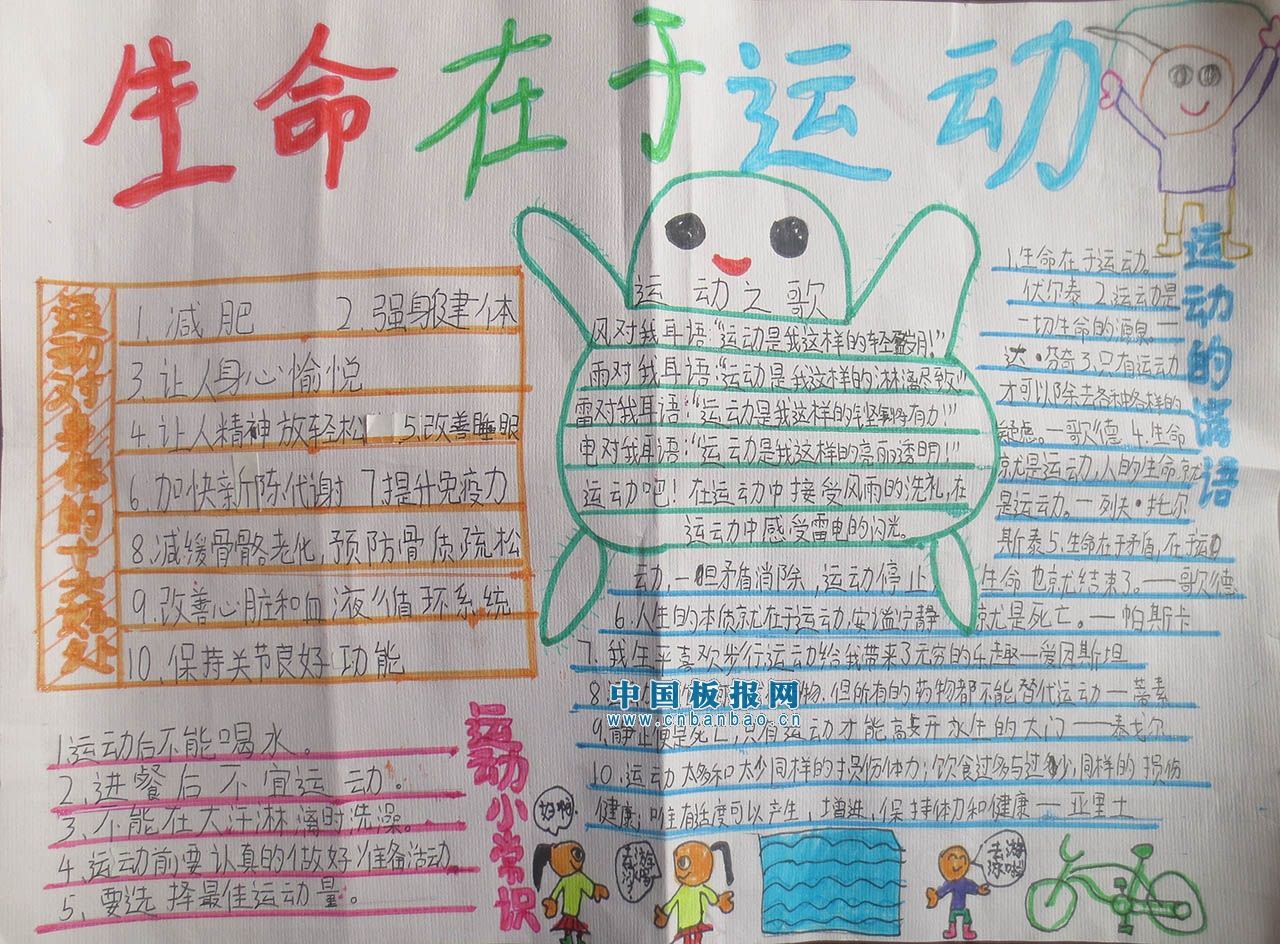 生命在于运动
运动对身体的十大好处
1.减肥 2.强身健体
3.让人身心愉悦
4.让人精神放轻松 5.改善睡眠
6.加快新陈代谢 7.提升免疫力
8.减缓骨骼老化,预防骨质疏松
9.改善心脏和血液循环系统
10.保持关节良好功能
运动小常识
1.运动后不能喝水。
2.进餐后不宜运动。
3.不能在大汗淋漓时洗澡。
4.运动前要认真的做好准备活动。
5.要选择最佳运动量。
运动之歌
风对我耳语:“运动是我这样的轻盈!”
雨对我耳语:“运动是我这样的淋漓尽致”
雷对我耳语:“运动是我这样的铿锵有力!”
电对我耳语:“运动是我这样的亮丽透明!”
运动吧!在运动中接受风雨的洗礼,在
运动中感受雷电的闪光。
运动的满语
1.生命在于运动。—
伏尔泰 2.运动是
一切生命的源泉。—
达·芬奇 3.只有运动
才可以除去各种各样的
疑虑。—歌德 4.生命
就是运动,人的生命就
是运动。—列夫·托尔
斯泰 5.生命在于矛盾,在于运
动,一但矛盾消除,运动停止 生命也就结束了。—歌尔德
6.人生的本质就在于运动,安谧宁静 就是死亡。—帕斯卡
7.我生平喜欢步行,运动给我带来了无穷的乐趣—爱因斯坦
8 物.但所有的药物都不能替代运动—蒂素
9.静止便是死亡,只有运动才能敲开永生的大门—泰戈尔
10.运动太多和太少同样的损伤体力;饮食过多与过少,同样的损伤
健康;唯有适度可以产生,增进,保持体力和健康—亚里士
中国板报网
www.cnbanbao.cn
好啊.
去游泳吗
去游泳啦